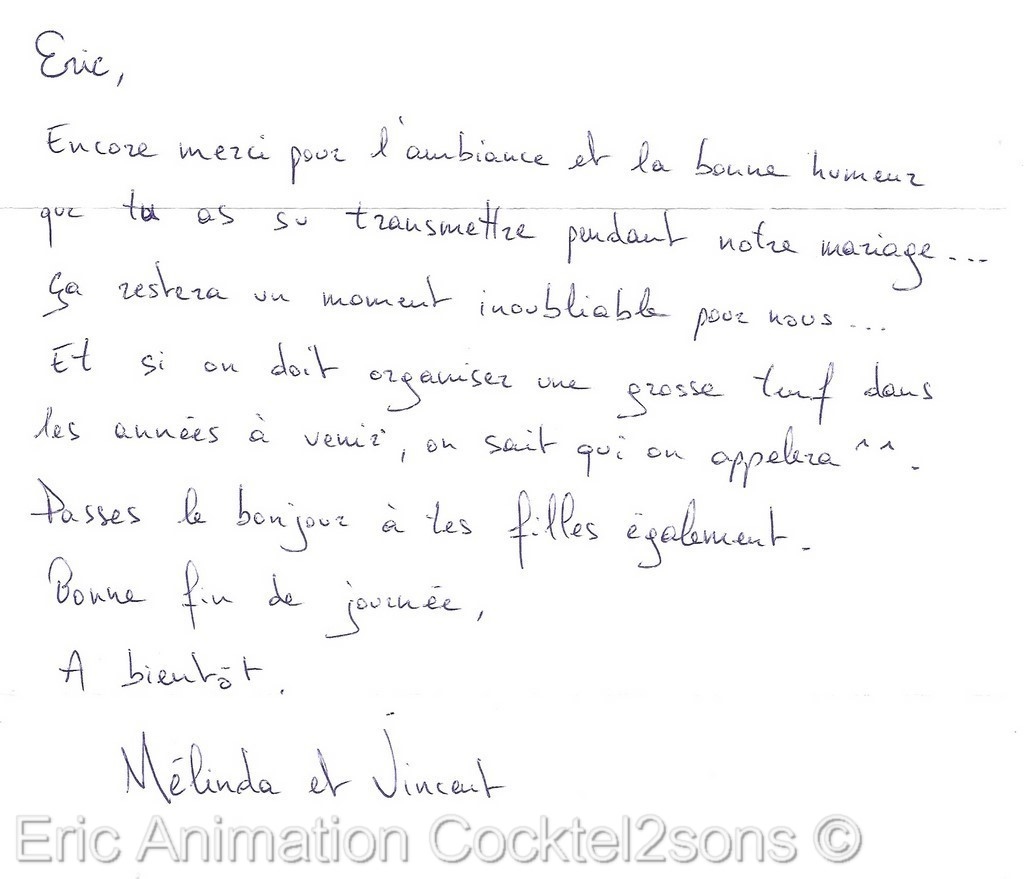 Eric,
Encore merci pour l'ambiance et la bonne humeur
que tu as su transmettre pendant notre mariage...
ça restera un moment inoubliable pour nous...
Et si on doit organiser une grosse teuf dans
les années à venir, on sait qui on appelera ^^.
Passes le bonjour à tes filles également.
Bonne fin de journée,
A bientôt.
Mélinda et Vincent
Eric Animation Cocktel2sons ©